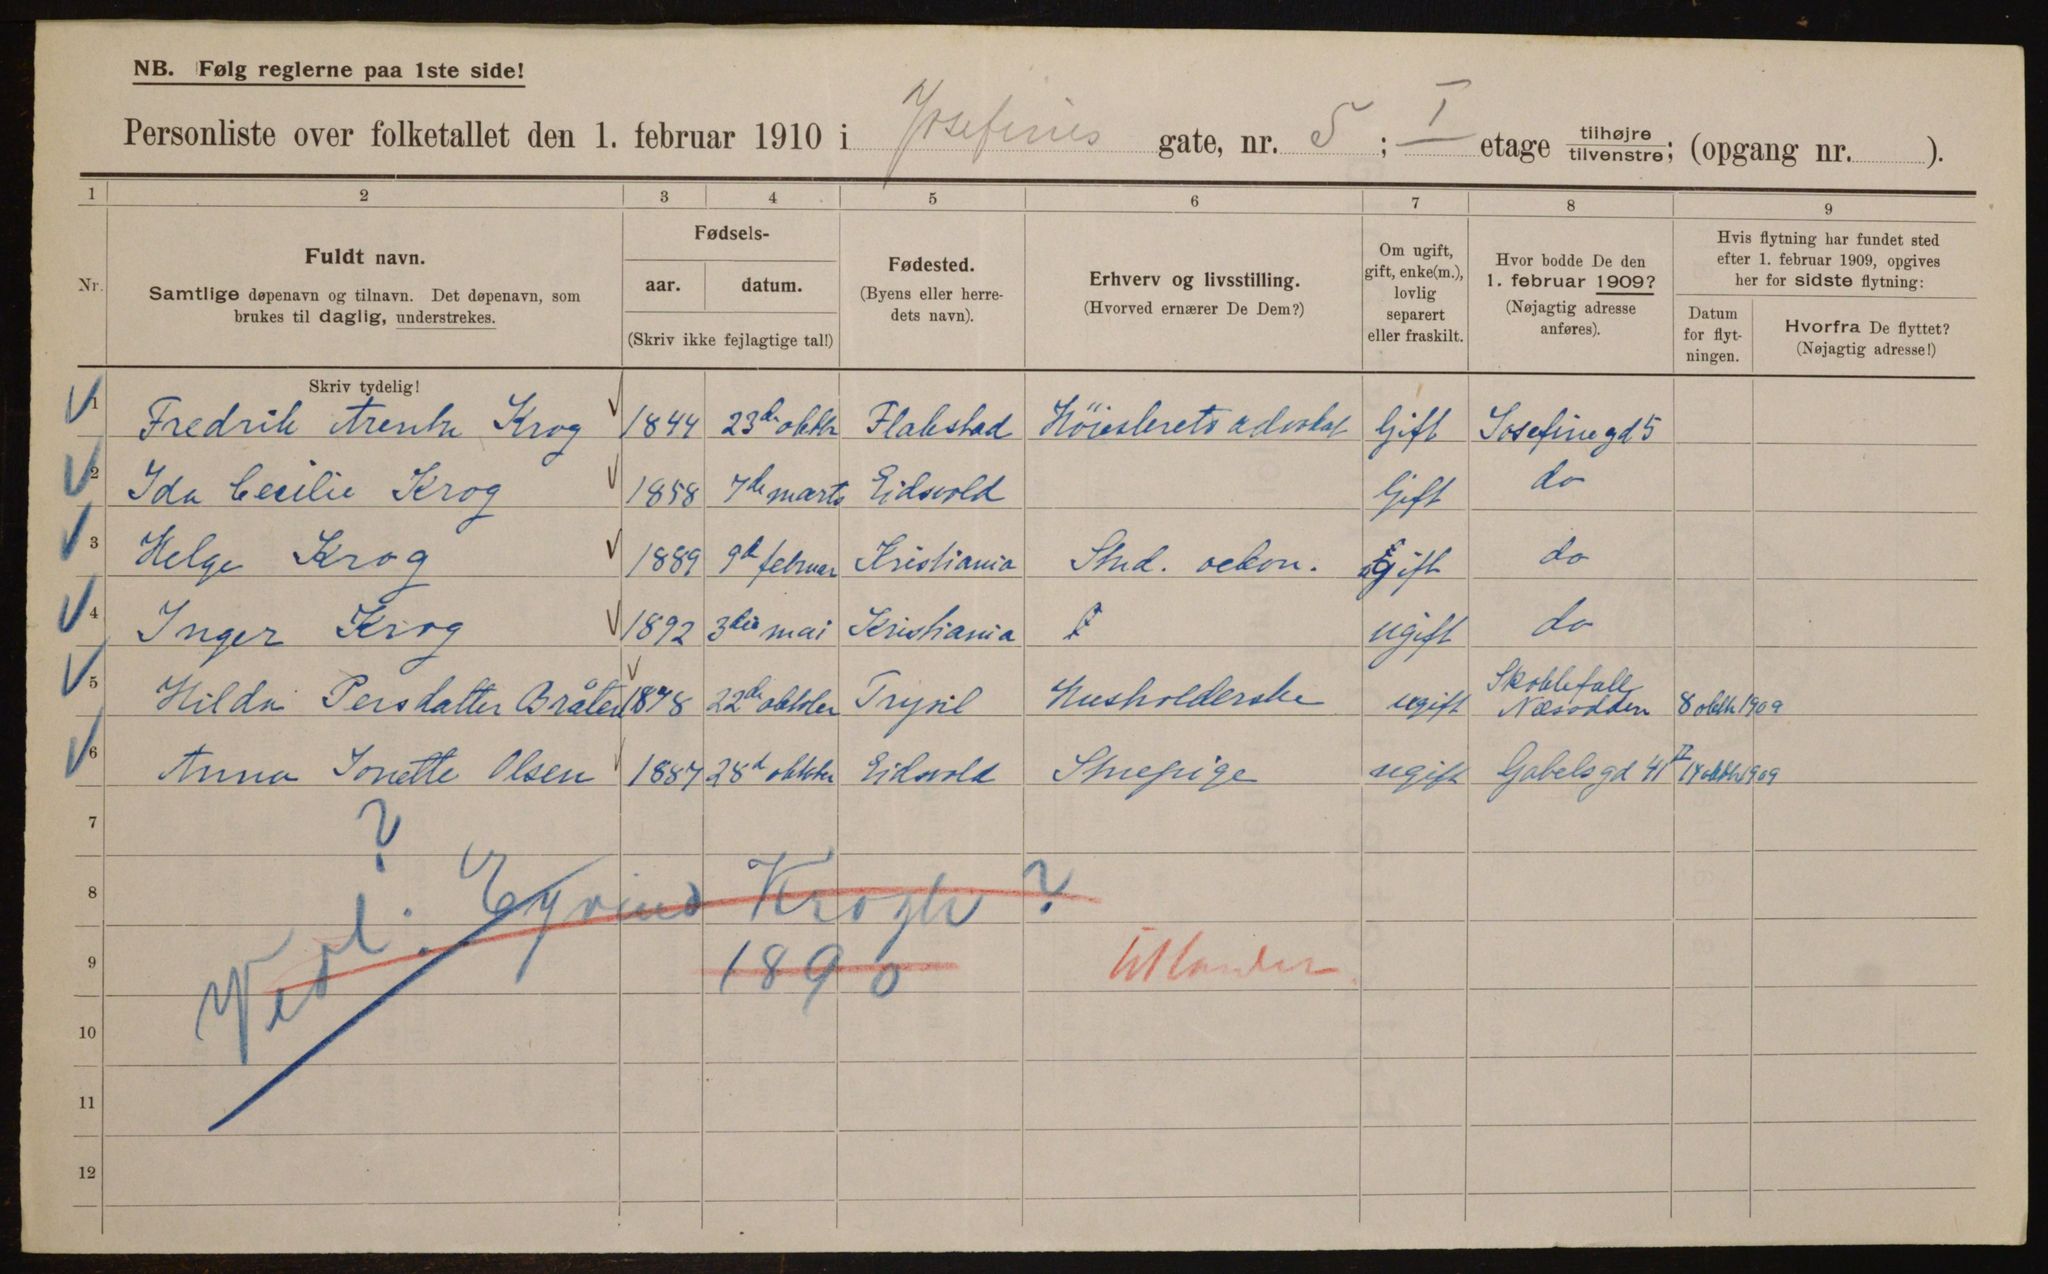 NB. Følg reglerne paa 1ste side!
Personliste over folketallet den 1. februar 1910 i Josefines gate, nr. 5 ; I etage tilhøjre/tilvenstre; (opgang nr. ).
1 2 3 4 5 6 7 8 9
Nr.
Fuldt navn.
Samtlige døpenavn og tilnavn. Det døpenavn, som
brukes til daglig, understrekes.
Fødsels-
aar. datum.
(Skriv ikke fejlagtige tal!)
Fødested.
(Byens eller herre-
dets navn).
Erhverv og livsstilling.
(Hvorved ernærer De Dem?)
Om ugift,
gift, enke(m.),
lovlig
separert
eller fraskilt.
Hvor bodde De den
1. februar 1909?
(Nøjagtig adresse
anføres).
Hvis flytning har fundet sted
efter 1. februar 1909, opgives
her for sidste flytning:
Datum
for flyt-
ningen.
Hvorfra De flyttet?
(Nøjagtig adresse!)
Skriv tydelig!
1 Fredrik Arentz Krog 1844 23de oktbr Flakstad Höiesterets advokat Gift Josefinegd 5
2 Ida Cecilie Krog 1858 7de marts Eidsvold Gift do
3 Helge Krog 1889 9d februar Kristiania Stud. oekon. ugift do
4 Inger Krog 1892 3die mai Kristiania ugift do
5 Hilda Persdatter Bråten 1878 22de oktober Trysil Husholderske ugift Næsodden 8 oktb 1909
6 Anna Jonette Olsen 1887 28d oktober Eidsvold Stuepige ugift Gabelsgd 41 II 14 oktb 1909
7
?
8 Eyvind Krogh ?
9 1890 Utlandet
10
11
12